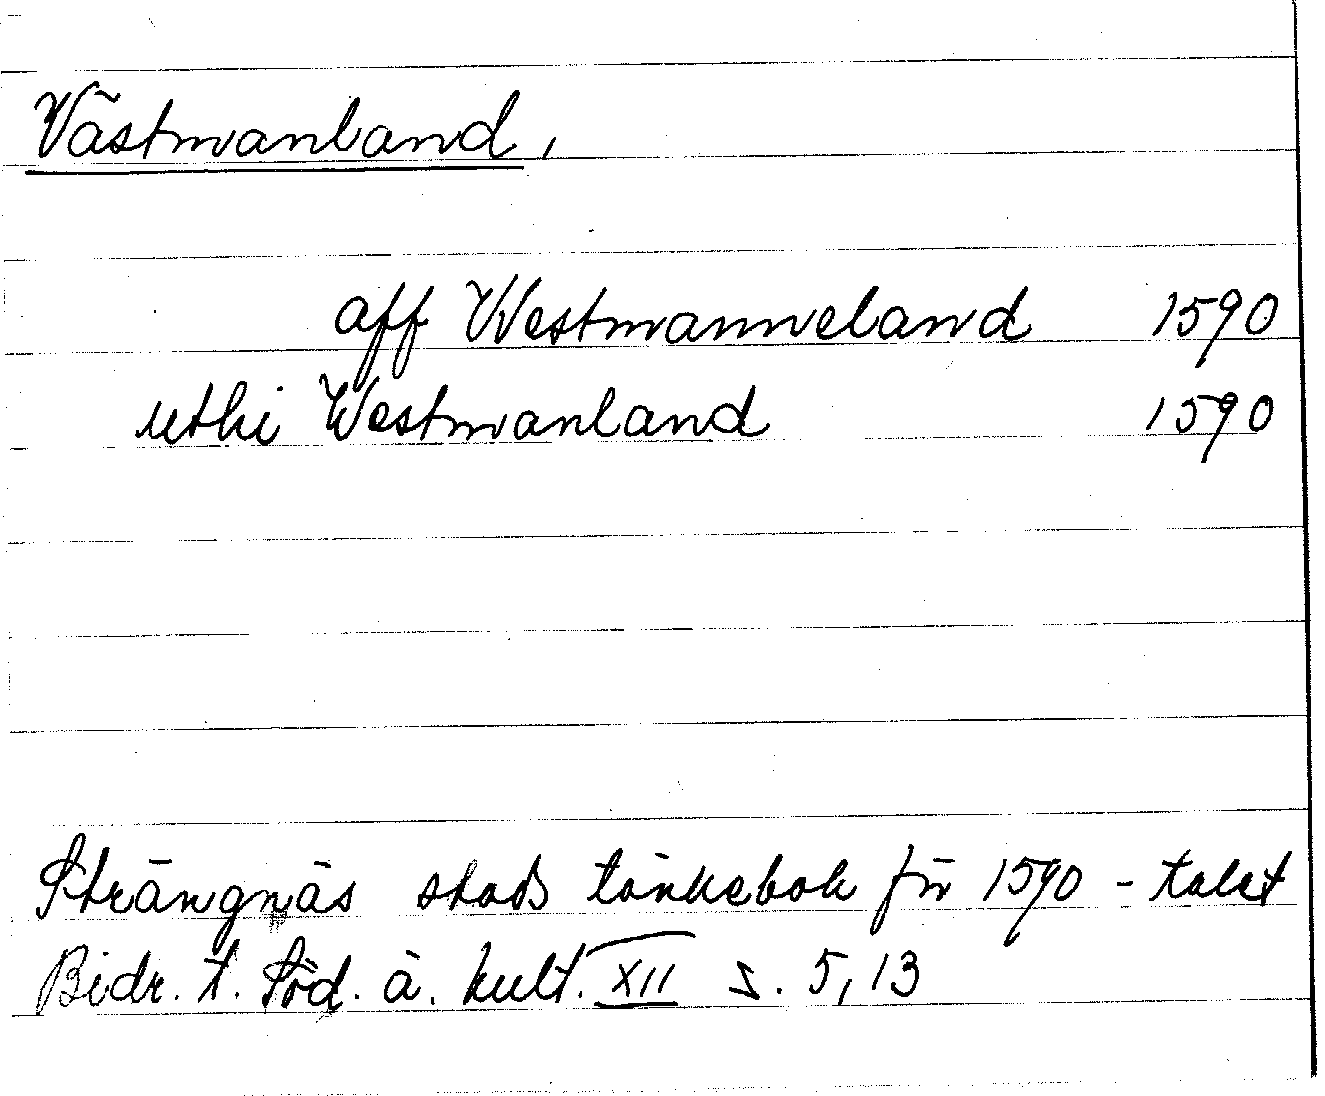 Västmanland,
aff Westmanneland 1590
uthi Westmanland 1590
Strängnäs stads tänkebok för 1590-talet
Bidr. t. Söd. ä. kult. XII s. 5, 13